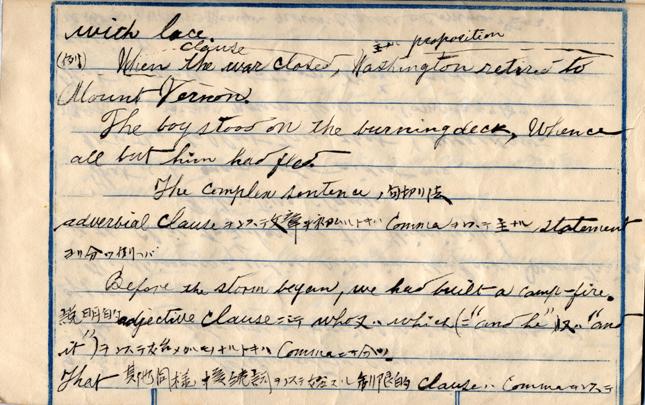 with lace.
clause 主ナル proposition
(例) When the war closed, Washington retired to
Mount Vernon.
The boy stood on the burning deck, Whence
all but him had fled.
The complex sentence, 句切リ法
adverbial clause ヲシステ文章ヲ初ムルトキハ Comma ヲシステ主ナル statement
ヨリ分ツ例ヘバ
Before the storm began, we had built a camp-fire.
説明的 adjective clause ニテ who 又ハ which (="and he" 又ハ "and
it") ヲシステ始メルトキハ Comma ニテ分ツ
That 其他同様 接続詞ヲシステ始マル制限的 clause ハ Comma ヲシステ